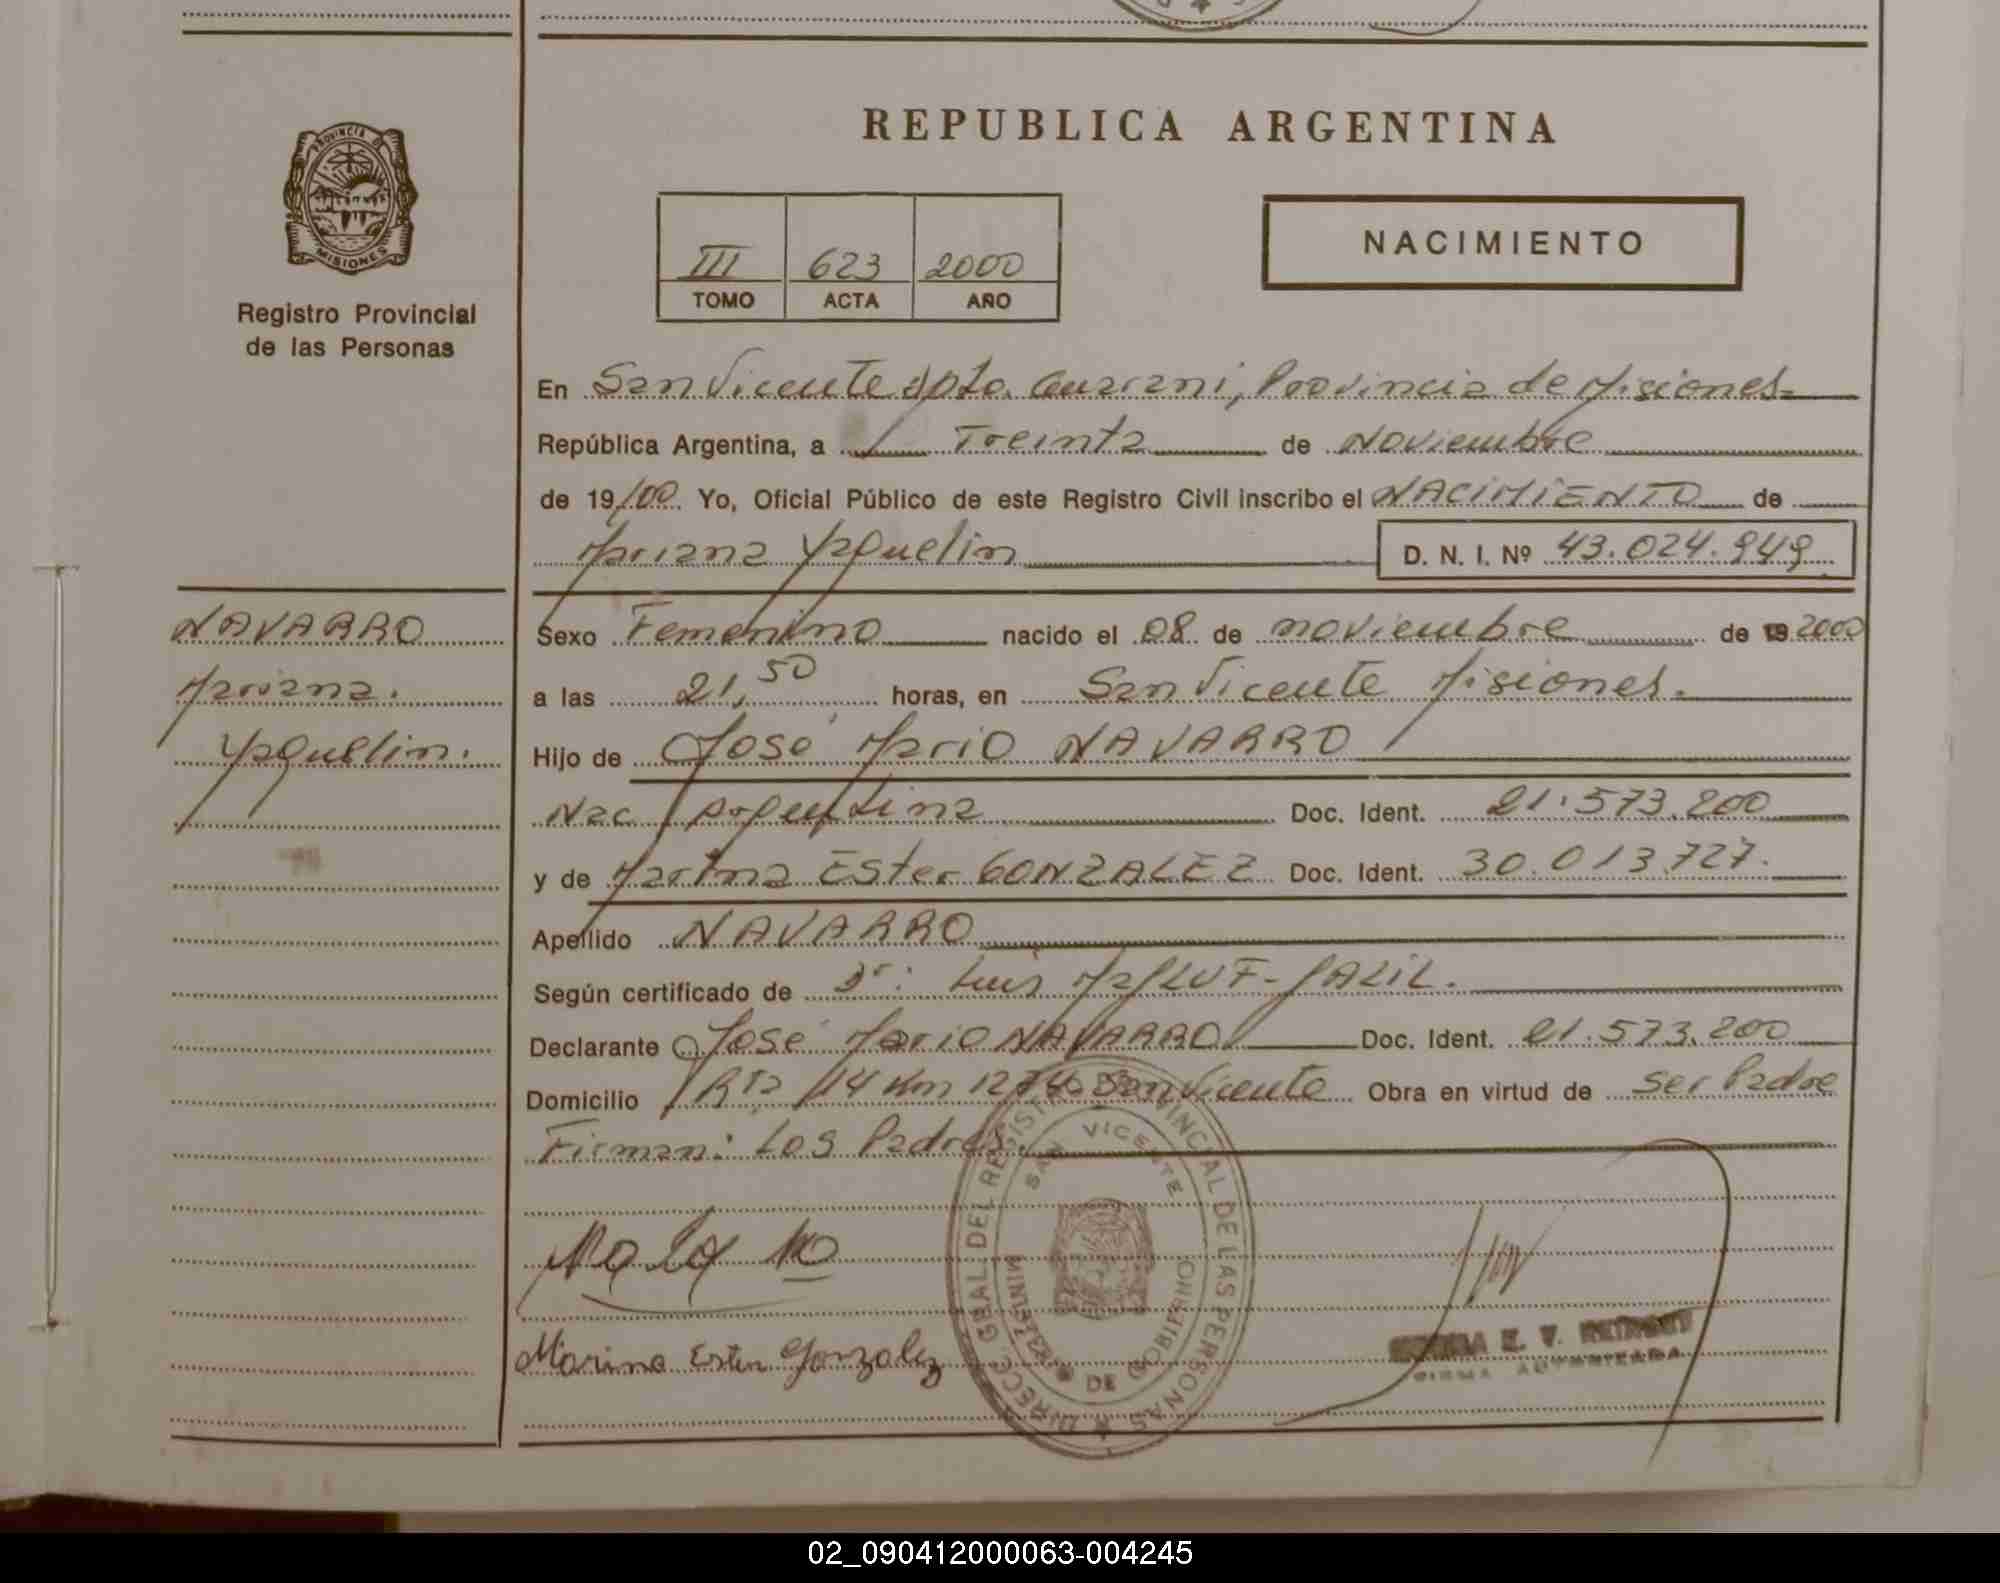 REPUBLICA ARGENTINA
PROVINCIA DE MISIONES
Registro Provincial
de las Personas
III 623 2000
TOMO ACTA AÑO
NACIMIENTO
En San Vicente dpto. Guarani, Provincia de Misiones
República Argentina, a Treinta de Noviembre
de 19/00 Yo, Oficial Público de este Registro Civil inscribo el NACIMIENTO de
Mariana Yaquelin D. N. I. Nº 43.024.949
NAVARRO
Mariana.
Yaquelin.
Sexo Femenino nacido el 08 de noviembre de 2000
a las 21,50 horas, en San Vicente Misiones.
Hijo de José Mario NAVARRO
Nac Argentina Doc. Ident. 21.573.200
y de Marina Ester GONZALEZ Doc. Ident. 30.013.727.
Apellido NAVARRO
Según certificado de Dr: Luis
Declarante José Mario NAVARRO Doc. Ident. 21.573.200
Domicilio Rta 14 Km San Vicente Obra en virtud de Ser Padre
Firman: Los Padres.
DIRECC. GRAL DEL REGISTRO PROVINCIAL DE LAS PERSONAS
SAN VICENTE
MINISTERIO DE GOBIERNO
Marina Ester Gonzalez
E. V.
FIRMA AUTORIZADA
02_090412000063-004245